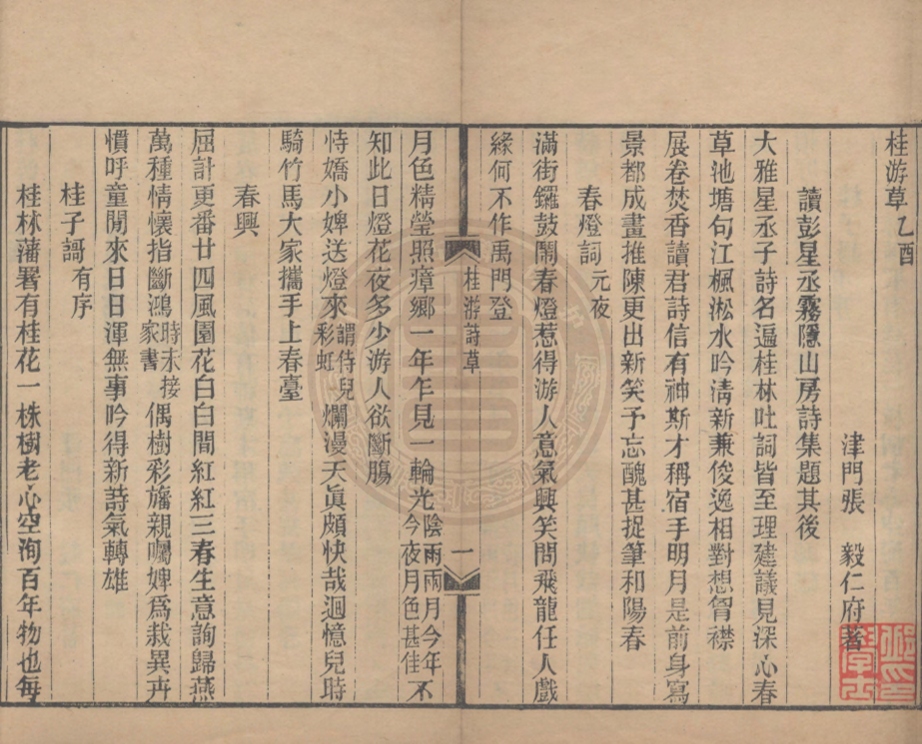 桂游草乙酉
津門張　毅仁府著
讀彭星丞霧隱山房詩集題其後
大雅星丞子詩名遍桂林吐詞皆至理建議見深心春
草池塘句江楓淞水吟清新兼俊逸相對想胷襟
展卷焚香讀君詩信有神斯才稱宿手明月是前身寫
景都成畫推陳更出新笑予忘醜甚捉筆和陽春
春燈詞元夜
滿街鑼鼓鬧春燈惹得游人意氣興笑問飛龍任人戲
緣何不作禹門登
桂游詩草
一
月色精瑩照瘴鄉一年乍見一輪光陰雨兩月今年不
今夜月色甚佳
知此日燈花夜多少游人欲斷膓
恃嬌小婢送燈來謂侍兒彩虹爛漫天眞頗快哉迴憶兒時
騎竹馬大家攜手上春臺
春興
屈計更番廿四風園花白白間紅紅三春生意詢歸燕
萬種情懷指斷鴻時未接家書偶樹彩旛親囑婢爲栽異卉
慣呼童閒來日日渾無事吟得新詩氣轉雄
桂子謌有序
桂林藩署有桂花一株樹老心空洵百年物也每